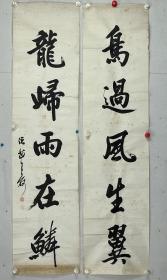 鳥過風生翼
龍歸雨在鱗